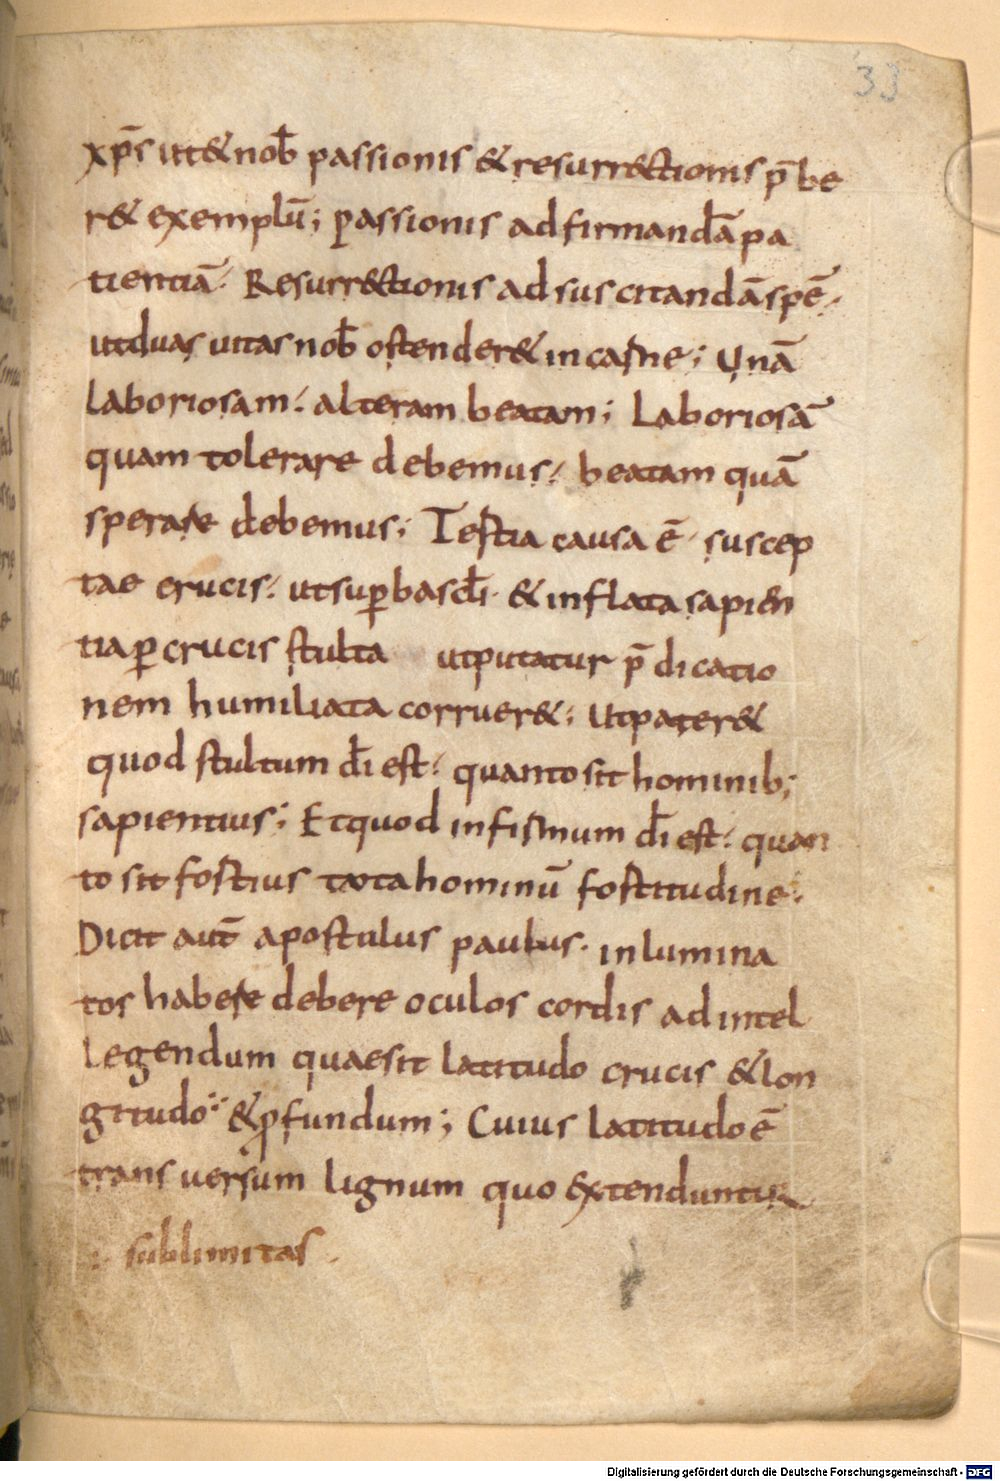 33
xp̄s ut & nob̄ passionis & resurrectionis p̄be
r& exemplū; passionis ad firmandā pa
tientiā. Resurr&ctionis ad suscitandā spē.
ut duas uitas nob̄ ostender& in carne; Unā
laboriosam. alteram beatam; Laboriosā
quam tolerare debemus. beatam quā
sperare debemus; Tertia causa ē susc̣ep
tae crucis. ut superba scłi. & inflata sapien
tia ꝑ crucis stulta ut putatur p̄dicatio
nem humiliata corruer&; Ut pater&
quod stultum dī est. quanto sit hominib;
sapientius; Et quod infirmum dī est. quan
to sit fortius tota hominū fortitudine.
Dicit aut̄ apostulus paulus. inlumina
tos habere debere oculos cordis ad intel
legendum quae sit latitudo crucis & lon
gitudo & ꝓfundum; Cuius latitudo ē
transuersum lignum quo extenduntur
: sublimitas.
Digitalisierung gefördert durch die Deutsche Forschungsgemeinschaft - DFG